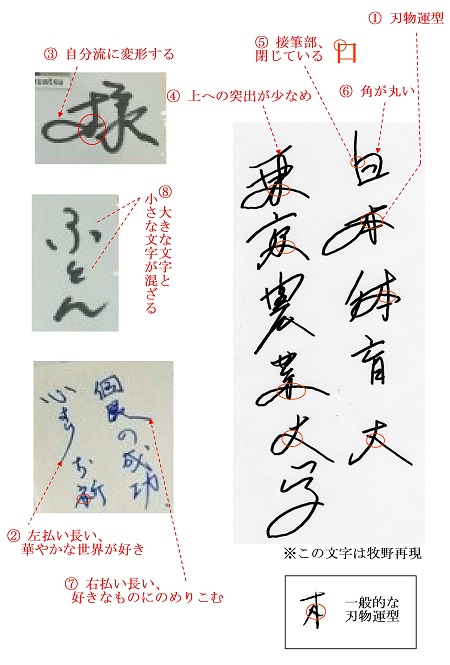 ① 刃物運型
⑤ 接筆部、
閉じている
口
③ 自分流に変形する
④ 上への突出が少なめ
⑥ 角が丸い
様
日本体育大
東京農業大学
⑧ 大きな文字と
小さな文字が混ざる
ふとん
個展の成功
心より
お祈
② 左払い長い、
華やかな世界が好き
⑦ 右払い長い、
好きなものにのめりこむ
※この文字は牧野再現
一般的な
刃物運型